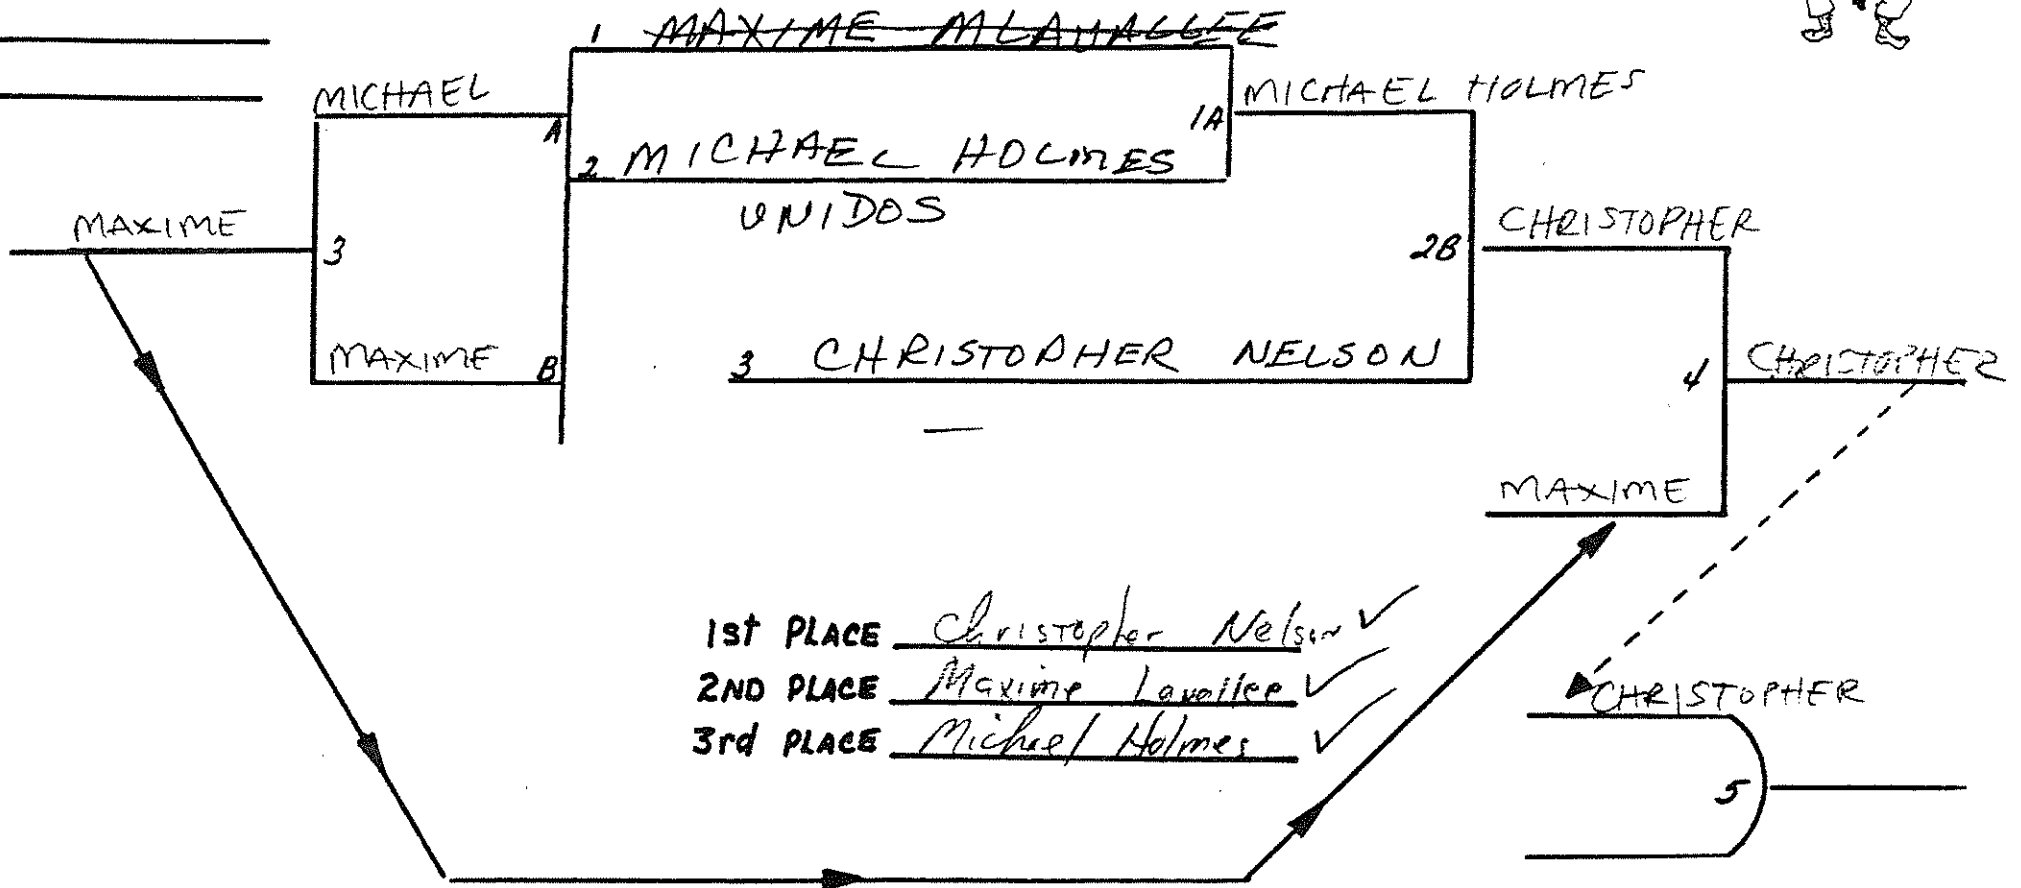 1 MAXIME MLAVALLEE
MICHAEL
A
1A
MICHAEL HOLMES
2 MICHAEL HOLMES
UNIDOS
MAXIME
3
2B
CHRISTOPHER
MAXIME
B
3 CHRISTOPHER NELSON
4
CHRISTOPHER
MAXIME
1st PLACE Christopher Nelson ✓
2ND PLACE Maxime Lavallee ✓
3rd PLACE Michael Holmes ✓
CHRISTOPHER
5